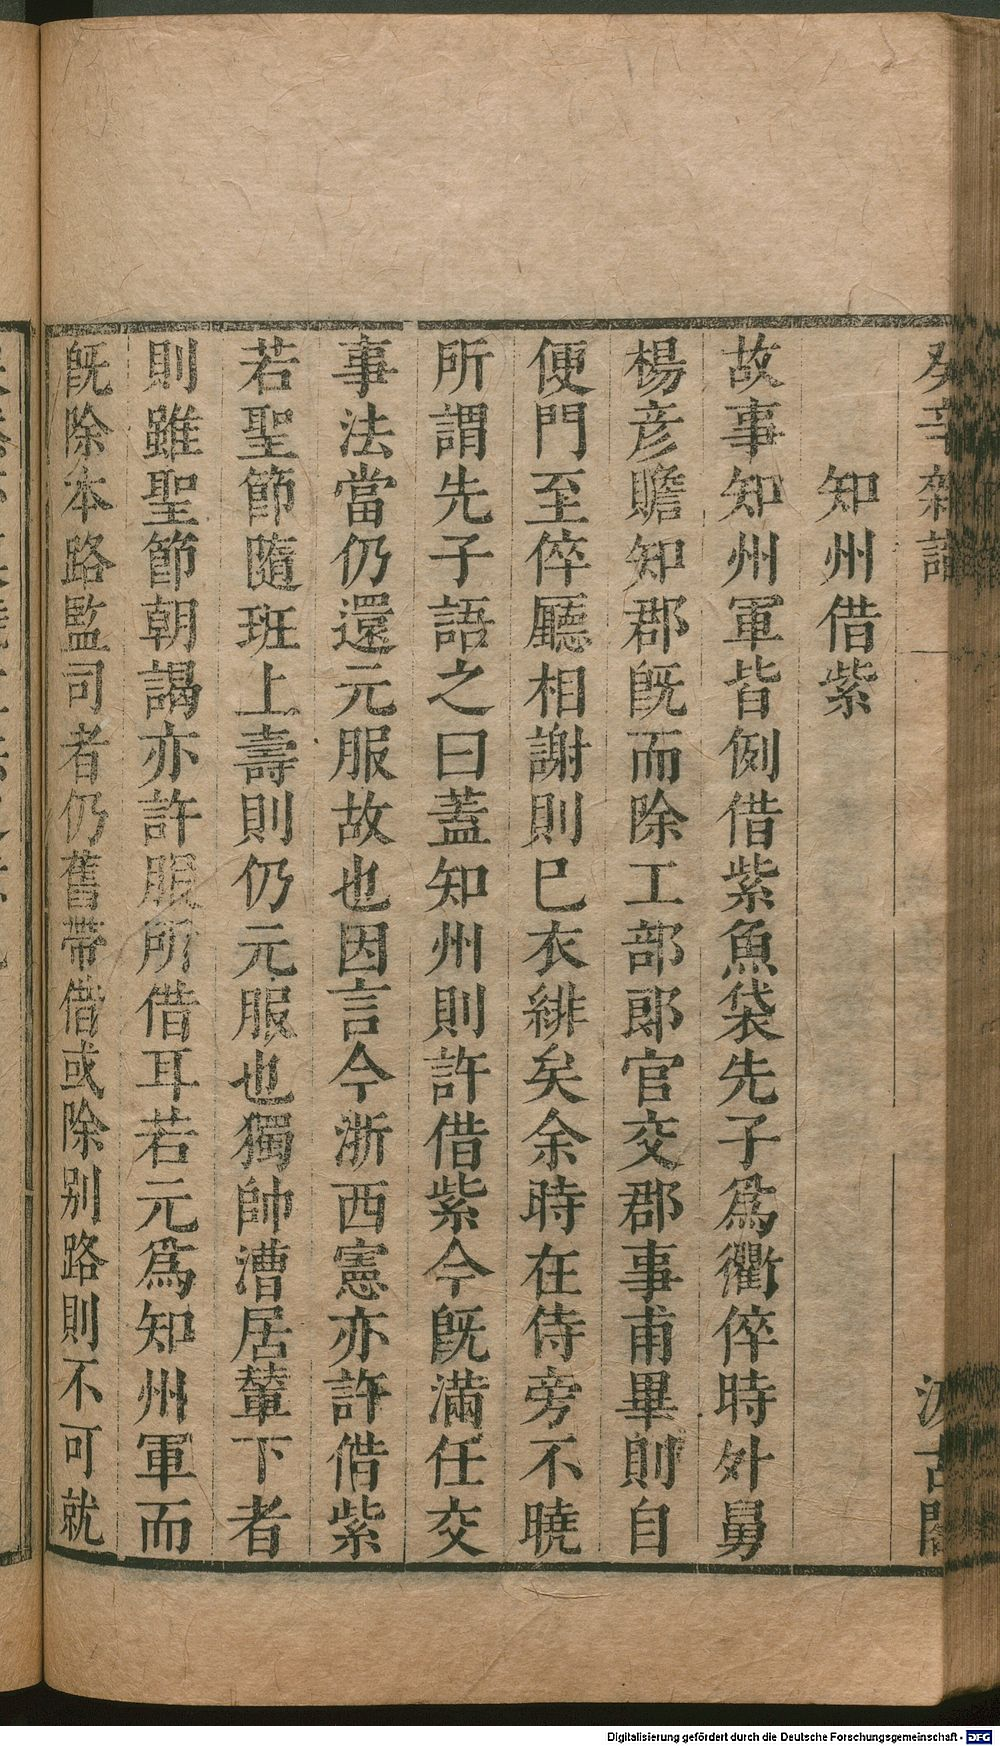 癸辛雜識
汲古閣
知州借紫
故事知州軍皆例借紫魚袋先子爲衢倅時外舅
楊彥贍知郡旣而除工部郎官交郡事甫畢則自
便門至倅廳相謝則巳衣緋矣余時在侍旁不曉
所謂先子語之曰蓋知州則許借紫今旣滿任交
事法當仍還元服故也因言今浙西憲亦許借紫
若聖節隨班上壽則仍元服也獨帥漕居輦下者
則雖聖節朝謁亦許服所借耳若元爲知州軍而
旣除本路監司者仍舊帶借或除别路則不可就
Digitalisierung gefördert durch die Deutsche Forschungsgemeinschaft - DFG